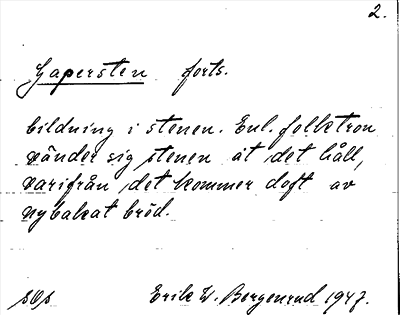 2.
Gapersten forts.
bildning i stenen. Enl. folktron
vänder sig stenen åt det håll,
varifrån det kommer doft av
nybakat bröd.
SOS Erik W. Bergenrud 1947.